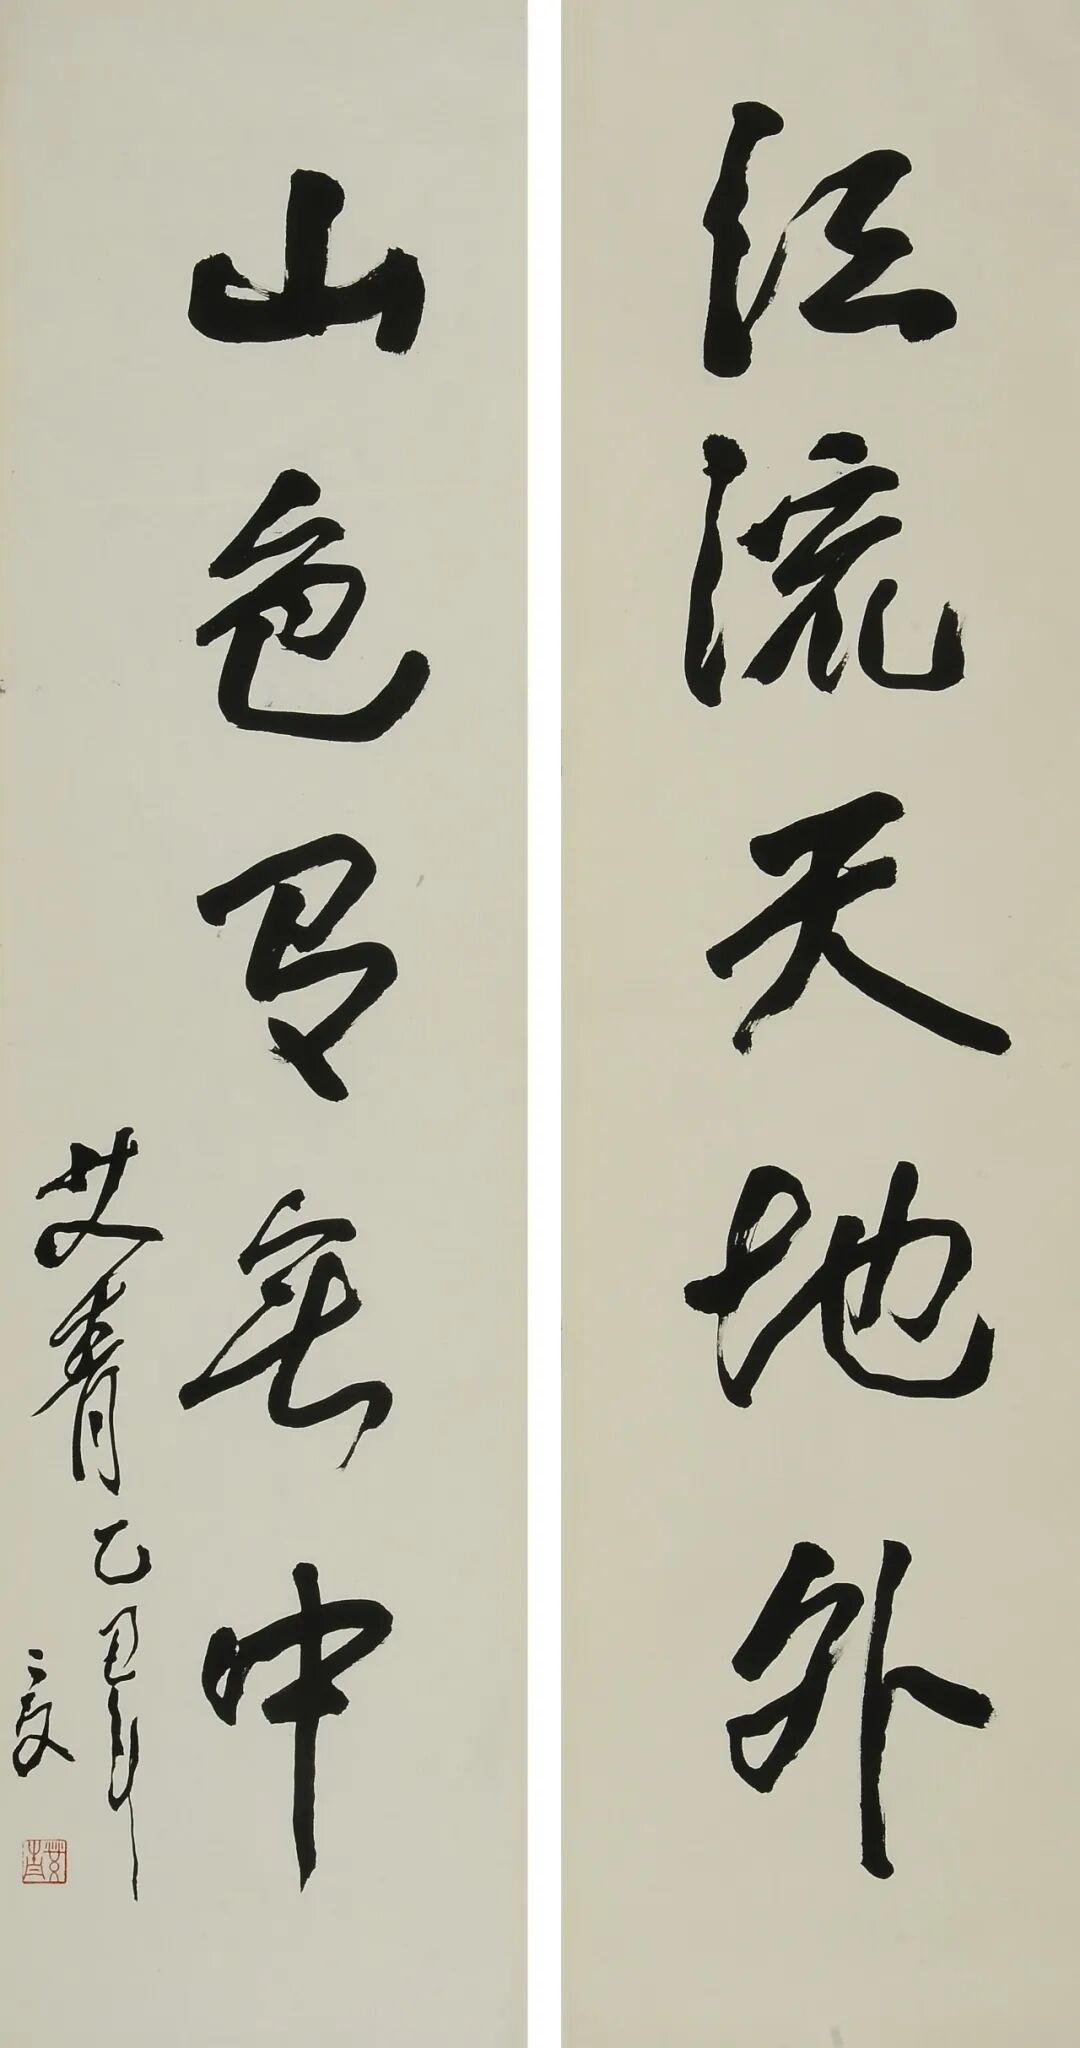 江流天地外
山色有无中
艾青乙丑年
二月